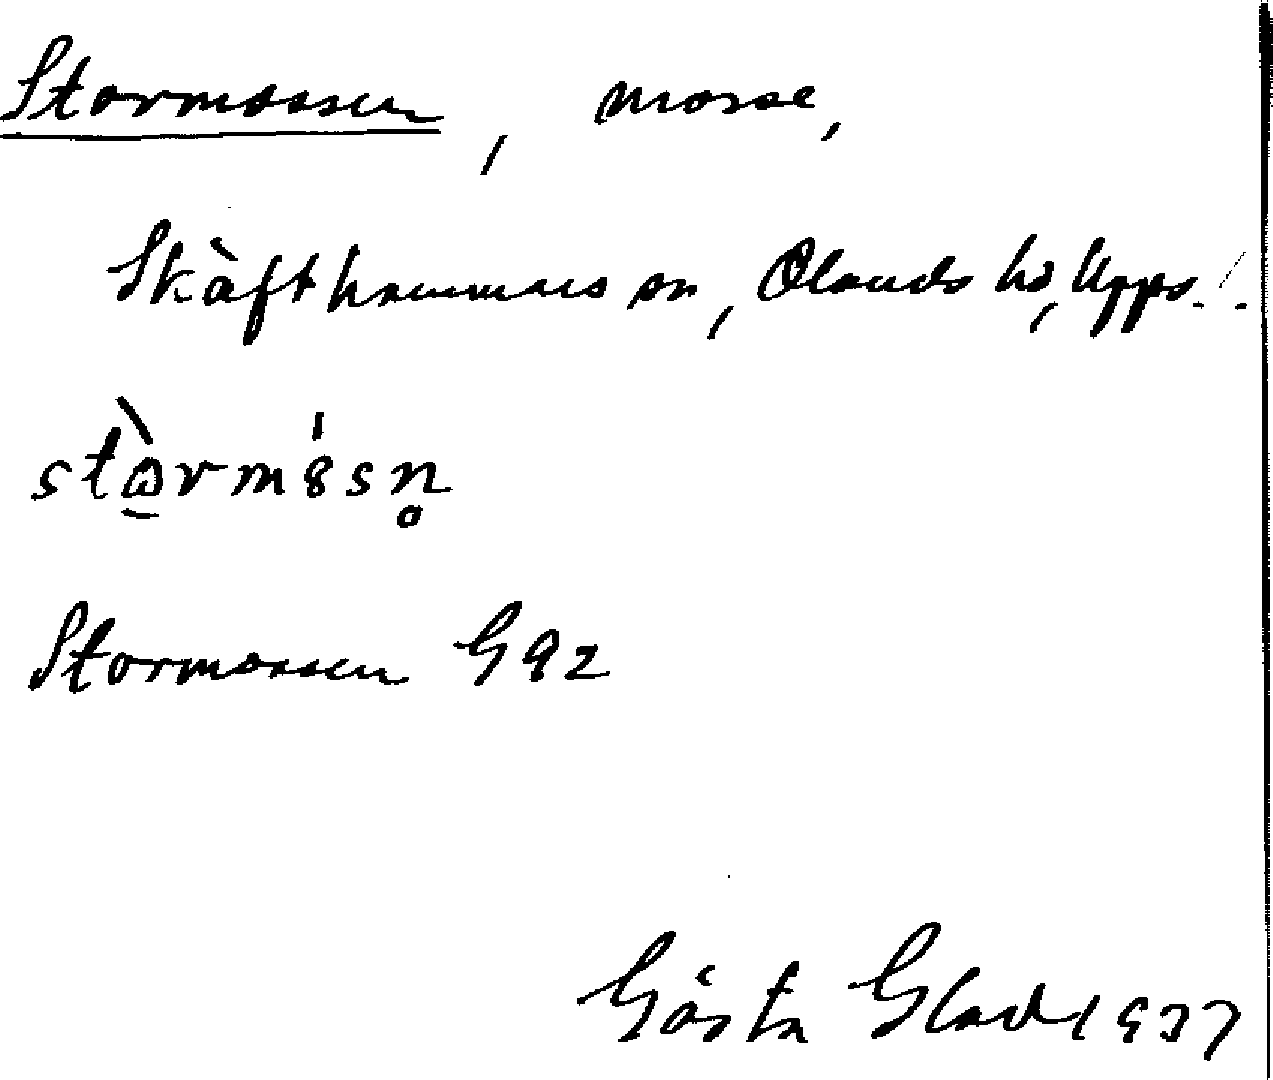 Stormossen, mosse,
Skäfthammars sn, Olands hd, Upps.
stɷ̀rmȯsn̥
Stormossen G92
Gösta Glad 1937